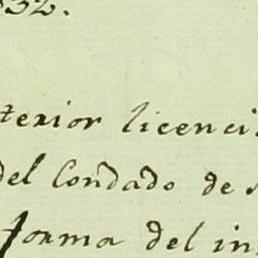 832.
terior licenci
del Condado de
forma del in